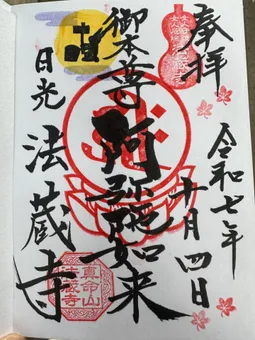 奉拝
令和七年
十月四日
御本尊
阿弥陀如来
日光
法蔵寺
寿命山
法蔵寺